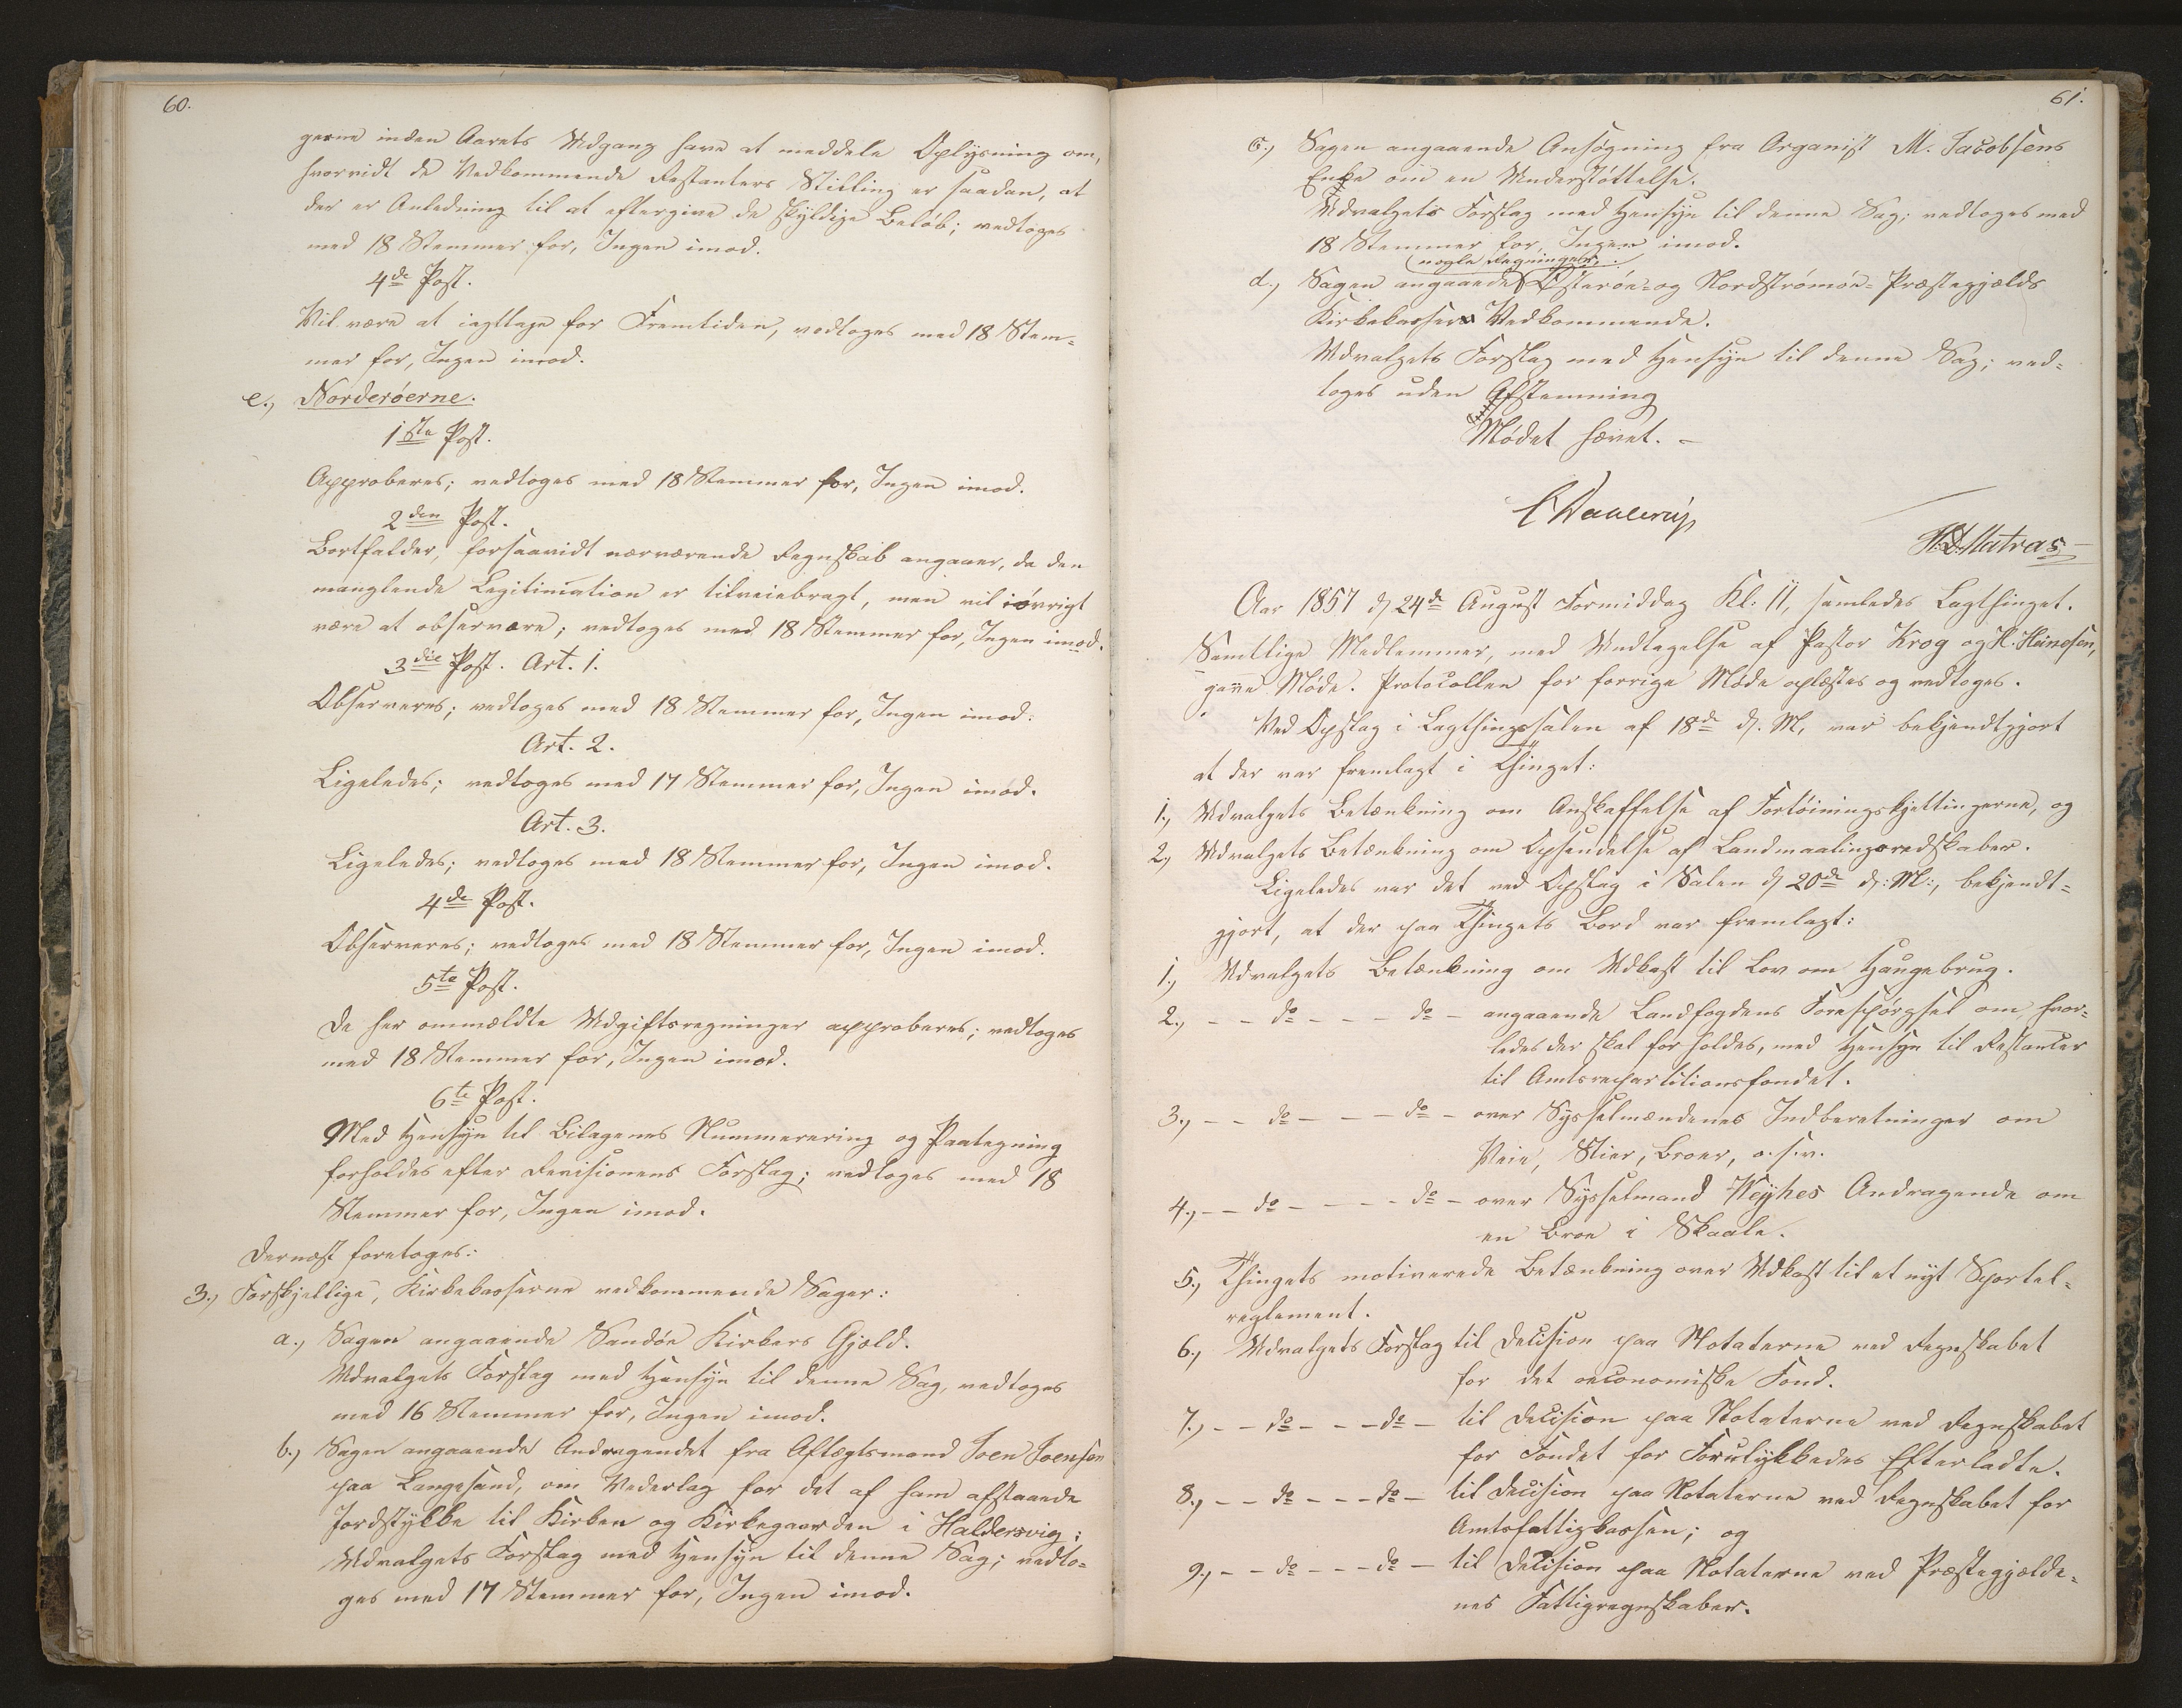 60.
gerne inden Aarets Udgang have at meddele Oplysning om,
hvorvidt de Vedkommende Restanters Stilling er saadan, at
der er Anledning til at eftergive de skyldige Beløb; vedtoges
med 18 Stemmer for, Ingen imod.
4de Post.
Vil være at iagttage for Fremtiden, vedtoges med 18 Stem-
mer for, Ingen imod.
e., Norderøerne.
1ste Post.
Approberes; vedtoges med 18 Stemmer for, Ingen imod.
2den Post.
Bortfalder, forsaavidt nærværende Regnskab angaaer, da den
manglende Legitimation er tilveiebragt, men vil iøvrigt
være at observere; vedtoges med 18 Stemmer for, Ingen imod.
3die Post. Art. 1.
Observeres; vedtoges med 18 Stemmer for, Ingen imod.
Art. 2.
Ligeledes; vedtoges med 17 Stemmer for, Ingen imod.
Art. 3.
Ligeledes; vedtoges med 18 Stemmer for, Ingen imod.
4de Post.
Observeres; vedtoges med 18 Stemmer for, Ingen imod.
5te Post.
De her ommældte Udgiftsregninger approberes; vedtoges
med 18 Stemmer for, Ingen imod.
6te Post.
Med Hensyn til Bilagenes Nummerering og Paategning
forholdes efter Revisionens Forslag; vedtoges med 18
Stemmer for, Ingen imod.
Dernæst foretoges:
3., Forskjellige, Kirkekasserne vedkommende Sager:
a., Sagen angaaende Sandøe Kirkers Gjæld.
Udvalgets Forslag med Hensyn til denne Sag, vedtoges
med 16 Stemmer for, Ingen imod.
b., Sagen angaaende Andragendet fra Aftægtsmand Joen Joensen
paa Langesand, om Vederlag for det af ham afstaaede
Jordstykke til Kirken og Kirkegaarden i Haldersvig;
Udvalgets Forslag med Hensyn til denne Sag; vedto-
ges med 17 Stemmer for, Ingen imod.
61.
c., Sagen angaaende Ansøgning fra Organist M. Jacobsens
Enke om en Understøttelse.
Udvalgets Forslag med Hensyn til denne Sag; vedtoges med
18 Stemmer for, Ingen imod.
nogle Regninger,
d., Sagen angaaende Østerøe- og Nordstrømøe-Præstegjælds
Kirkekasser Vedkommende.
Udvalgets Forslag med Hensyn til denne Sag; ved-
toges uden Afstemning
Mødet hævet. -
C Dahlerup
H. D. Matras
Aar 1857 d 24de August Formiddag Kl: 11, samledes Lagthinget.
Samtlige Medlemmer, med Undtagelse af Pastor Krog og H. Heinesen,
gave Møde. Protocollen for forrige Møde oplæstes og vedtoges.
Ved Opslag i Lagthingssalen af 18de d. M, var bekjendtgjort
at der var fremlagt i Thinget:
1., Udvalgets Betænkning om Anskaffelse af Fortøiningskjettingerne, og
2., Udvalgets Betænkning om Opsendelse af Landmaalingsredskaber.
Ligeledes var det ved Opslag i Salen d 20de d: M:, bekjendt-
gjort, at der paa Thingets Bord var fremlagt:
1., Udvalgets Betænkning om Udkast til Lov om Haugebrug.
2., - - do - - - do - angaaende Landfogdens Forespørgsel om, hvor-
ledes der skal forholdes, med Hensyn til Restancer
til Amtsrepartitionsfondet.
3., - - do - - - do - over Sysselmændenes Indberetninger om
Veie, Stier, Broer, o.s.v.
4., - - do - - - - do - over Sysselmand Weyhes Andragende om
en Broe i Skaale.
5., Thingets motiverede Betænkning over Udkast til et nyt Sportel-
reglement.
6., Udvalgets Forslag til Decision paa Notaterne ved Regnskabet
for det oeconomiske Fond.
7., - - do - - - do - til Decision paa Notaterne ved Regnskabet
for Fondet for Forulykkedes Efterladte.
8., - - do - - - do - til Decision paa Notaterne ved Regnskabet for
Amtsfattigkassen; og
9., - - do - - - do - til Decision paa Notaterne ved Præstegjælde-
nes Fattigregnskaber.